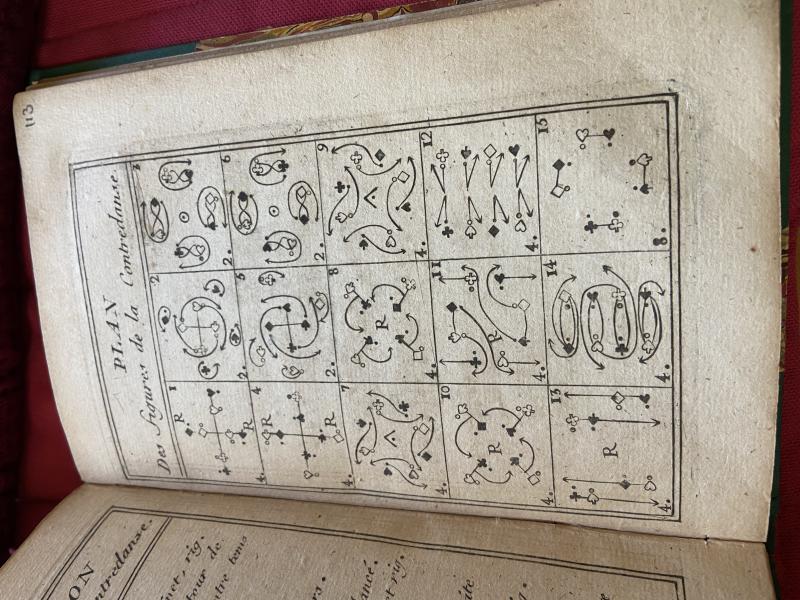 ON
ntredanse.
net, rig.
tour de
ntre tems
rs.
lancé.
et rig.
113
PLAN
Des figures de la Contredanse.
1 2 3
R
R
4. 2. 2.
4 5 6
R
R
4. 2. 2.
7 8 9
A R A
4. 4. 4.
10 11 12
R R
4. 4. 4.
13 14 15
R
4. 4. 8.